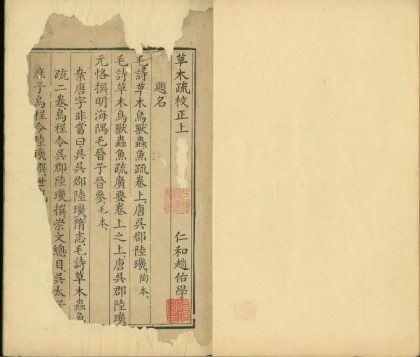 草木疏校正上 仁和趙佑學
題名
毛詩草木鳥獸蟲魚疏卷上唐吳郡陸璣陶本
毛詩草木鳥獸蟲魚疏廣要卷上之上唐吳郡陸璣
元恪撰明海隅毛晉子晉參毛本
案唐字非當曰吳吳郡陸璣隋志毛詩草木蟲魚
疏二卷烏程令吳郡陸璣撰崇文總目吳太子
庶子烏程令陸璣撰世